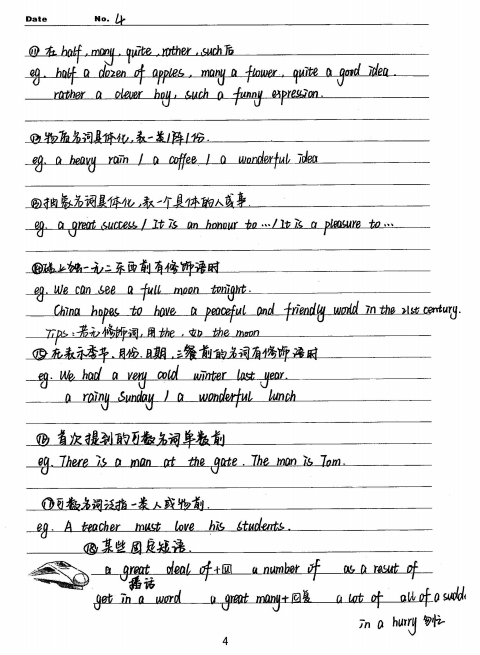 Date No. 4
⑾ 在half, many, quite, rather, such后
eg. half a dozen of apples, many a flower, quite a good idea.
rather a clever boy, such a funny expression.
⑿物质名词具体化,表一类/阵/份.
eg. a heavy rain / a coffee / a wonderful idea
⒀抽象名词具体化,表一个具体的人或事.
eg. a great success / It is an honour to … / It is a pleasure to …
⒁世上独一无二东西前有修饰语时
eg. We can see a full moon tonight.
China hopes to have a peaceful and friendly world in the 21st century.
Tips: 若无修饰词,用the,如 the moon
⒂在表示季节、月份、日期、三餐前的名词有修饰语时
eg. We had a very cold winter last year.
a rainy Sunday / a wonderful lunch
⒃首次提到的可数名词单数前
eg. There is a man at the gate. The man is Tom.
⒄可数名词泛指一类人或物前.
eg. A teacher must love his students.
⒅某些固定短语.
a great deal of+ a number of as a resut of
插话
get in a word a great many+ a lot of all of a sudd
in a hurry 匆忙
4